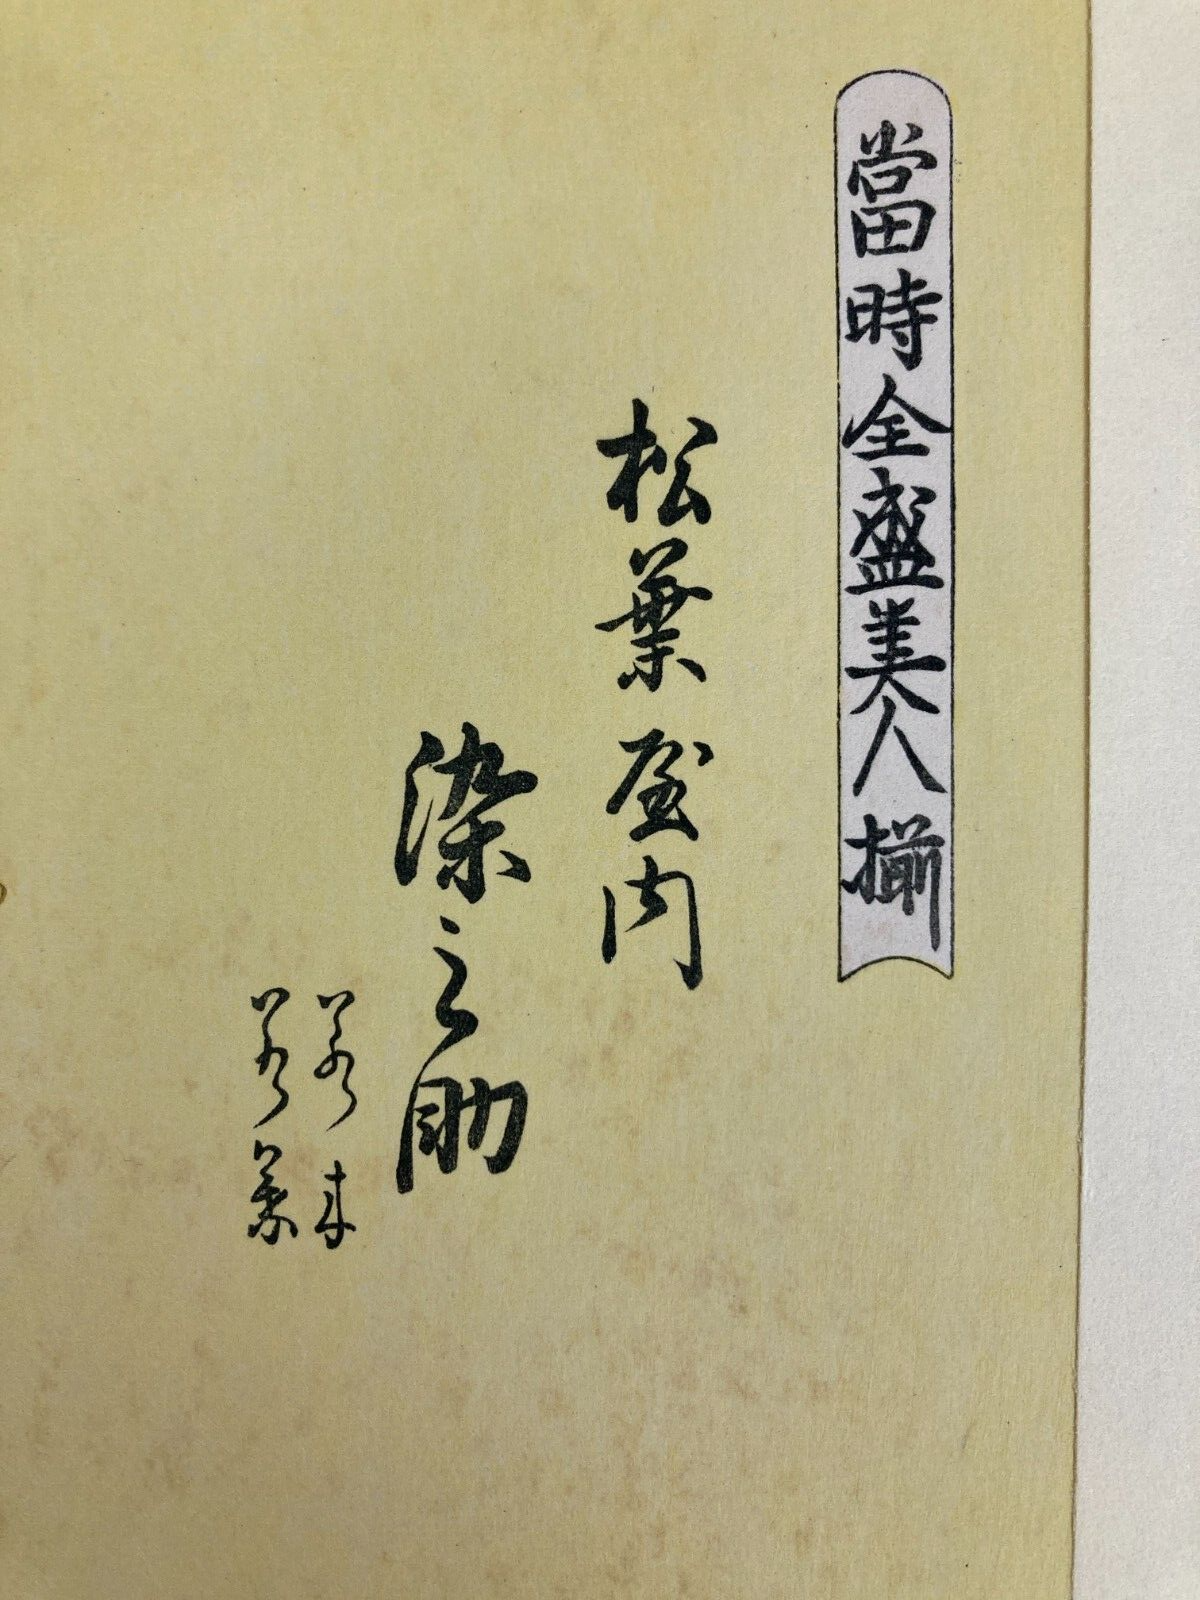 當時全盛美人揃
松葉屋内
染之助
若
若葉